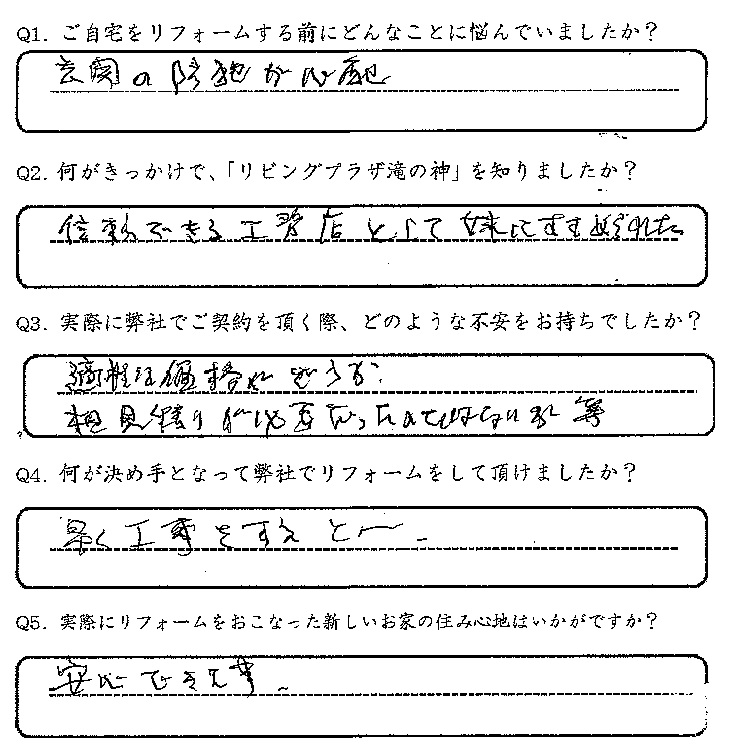 Q1. ご自宅をリフォームする前にどんなことに悩んでいましたか？
玄関の
Q2. 何がきっかけで、「リビングプラザ滝の神」を知りましたか？
信頼できる工務店として妹にすすめられた
Q3. 実際に弊社でご契約を頂く際、どのような不安をお持ちでしたか？
適性な価格かどうか
相見積りが必要だったのではないか 等
Q4. 何が決め手となって弊社でリフォームをして頂けましたか？
早く工事を
Q5. 実際にリフォームをおこなった新しいお家の住み心地はいかがですか？
安心できます。